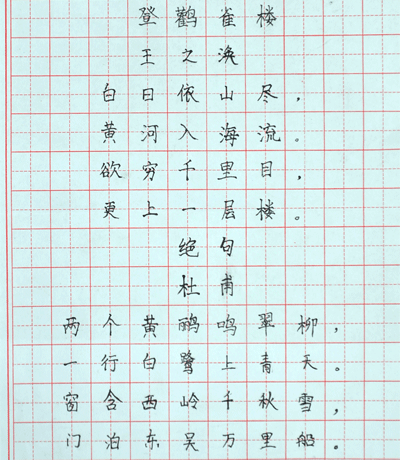 登鹳雀楼
王之涣
白日依山尽，
黄河入海流。
欲穷千里目，
更上一层楼。
绝句
杜甫
两个黄鹂鸣翠柳，
一行白鹭上青天。
窗含西岭千秋雪，
门泊东吴万里船。